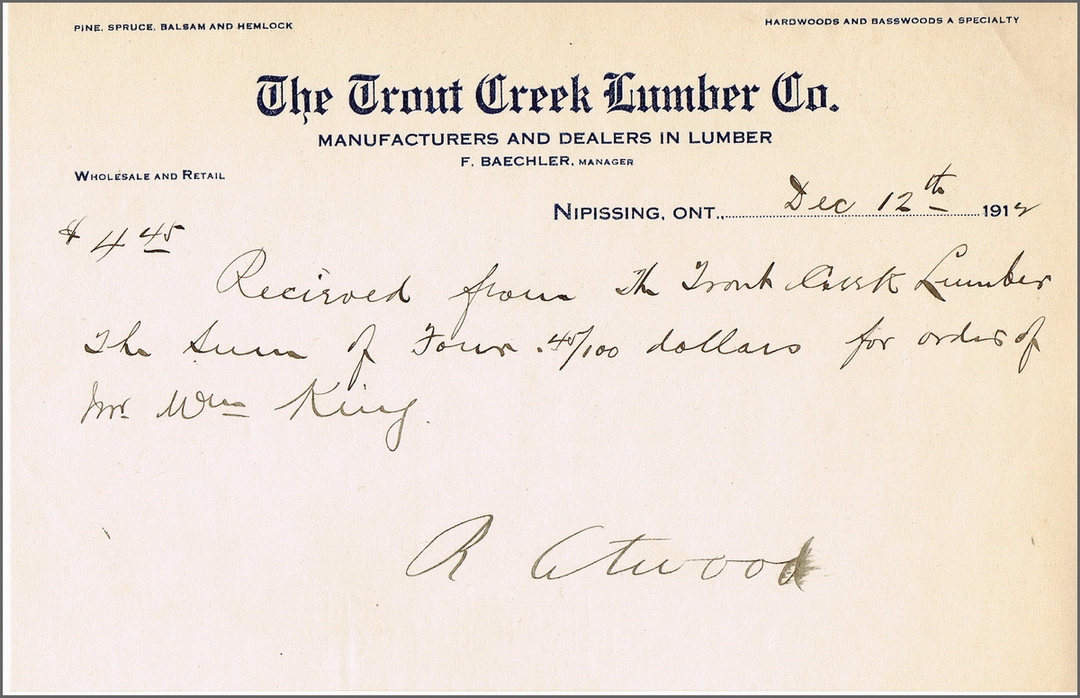 PINE, SPRUCE, BALSAM AND HEMLOCK
HARDWOODS AND BASSWOODS A SPECIALTY
The Trout Creek Lumber Co.
MANUFACTURERS AND DEALERS IN LUMBER
F. BAECHLER, MANAGER
WHOLESALE AND RETAIL
NIPISSING, ONT., Dec 12th 1912
$ 4 45
Recieved from The Trout Creek Lumber
The Sum of Four .45/100 dollars for order of
Mr. Wm King.
R Atwood